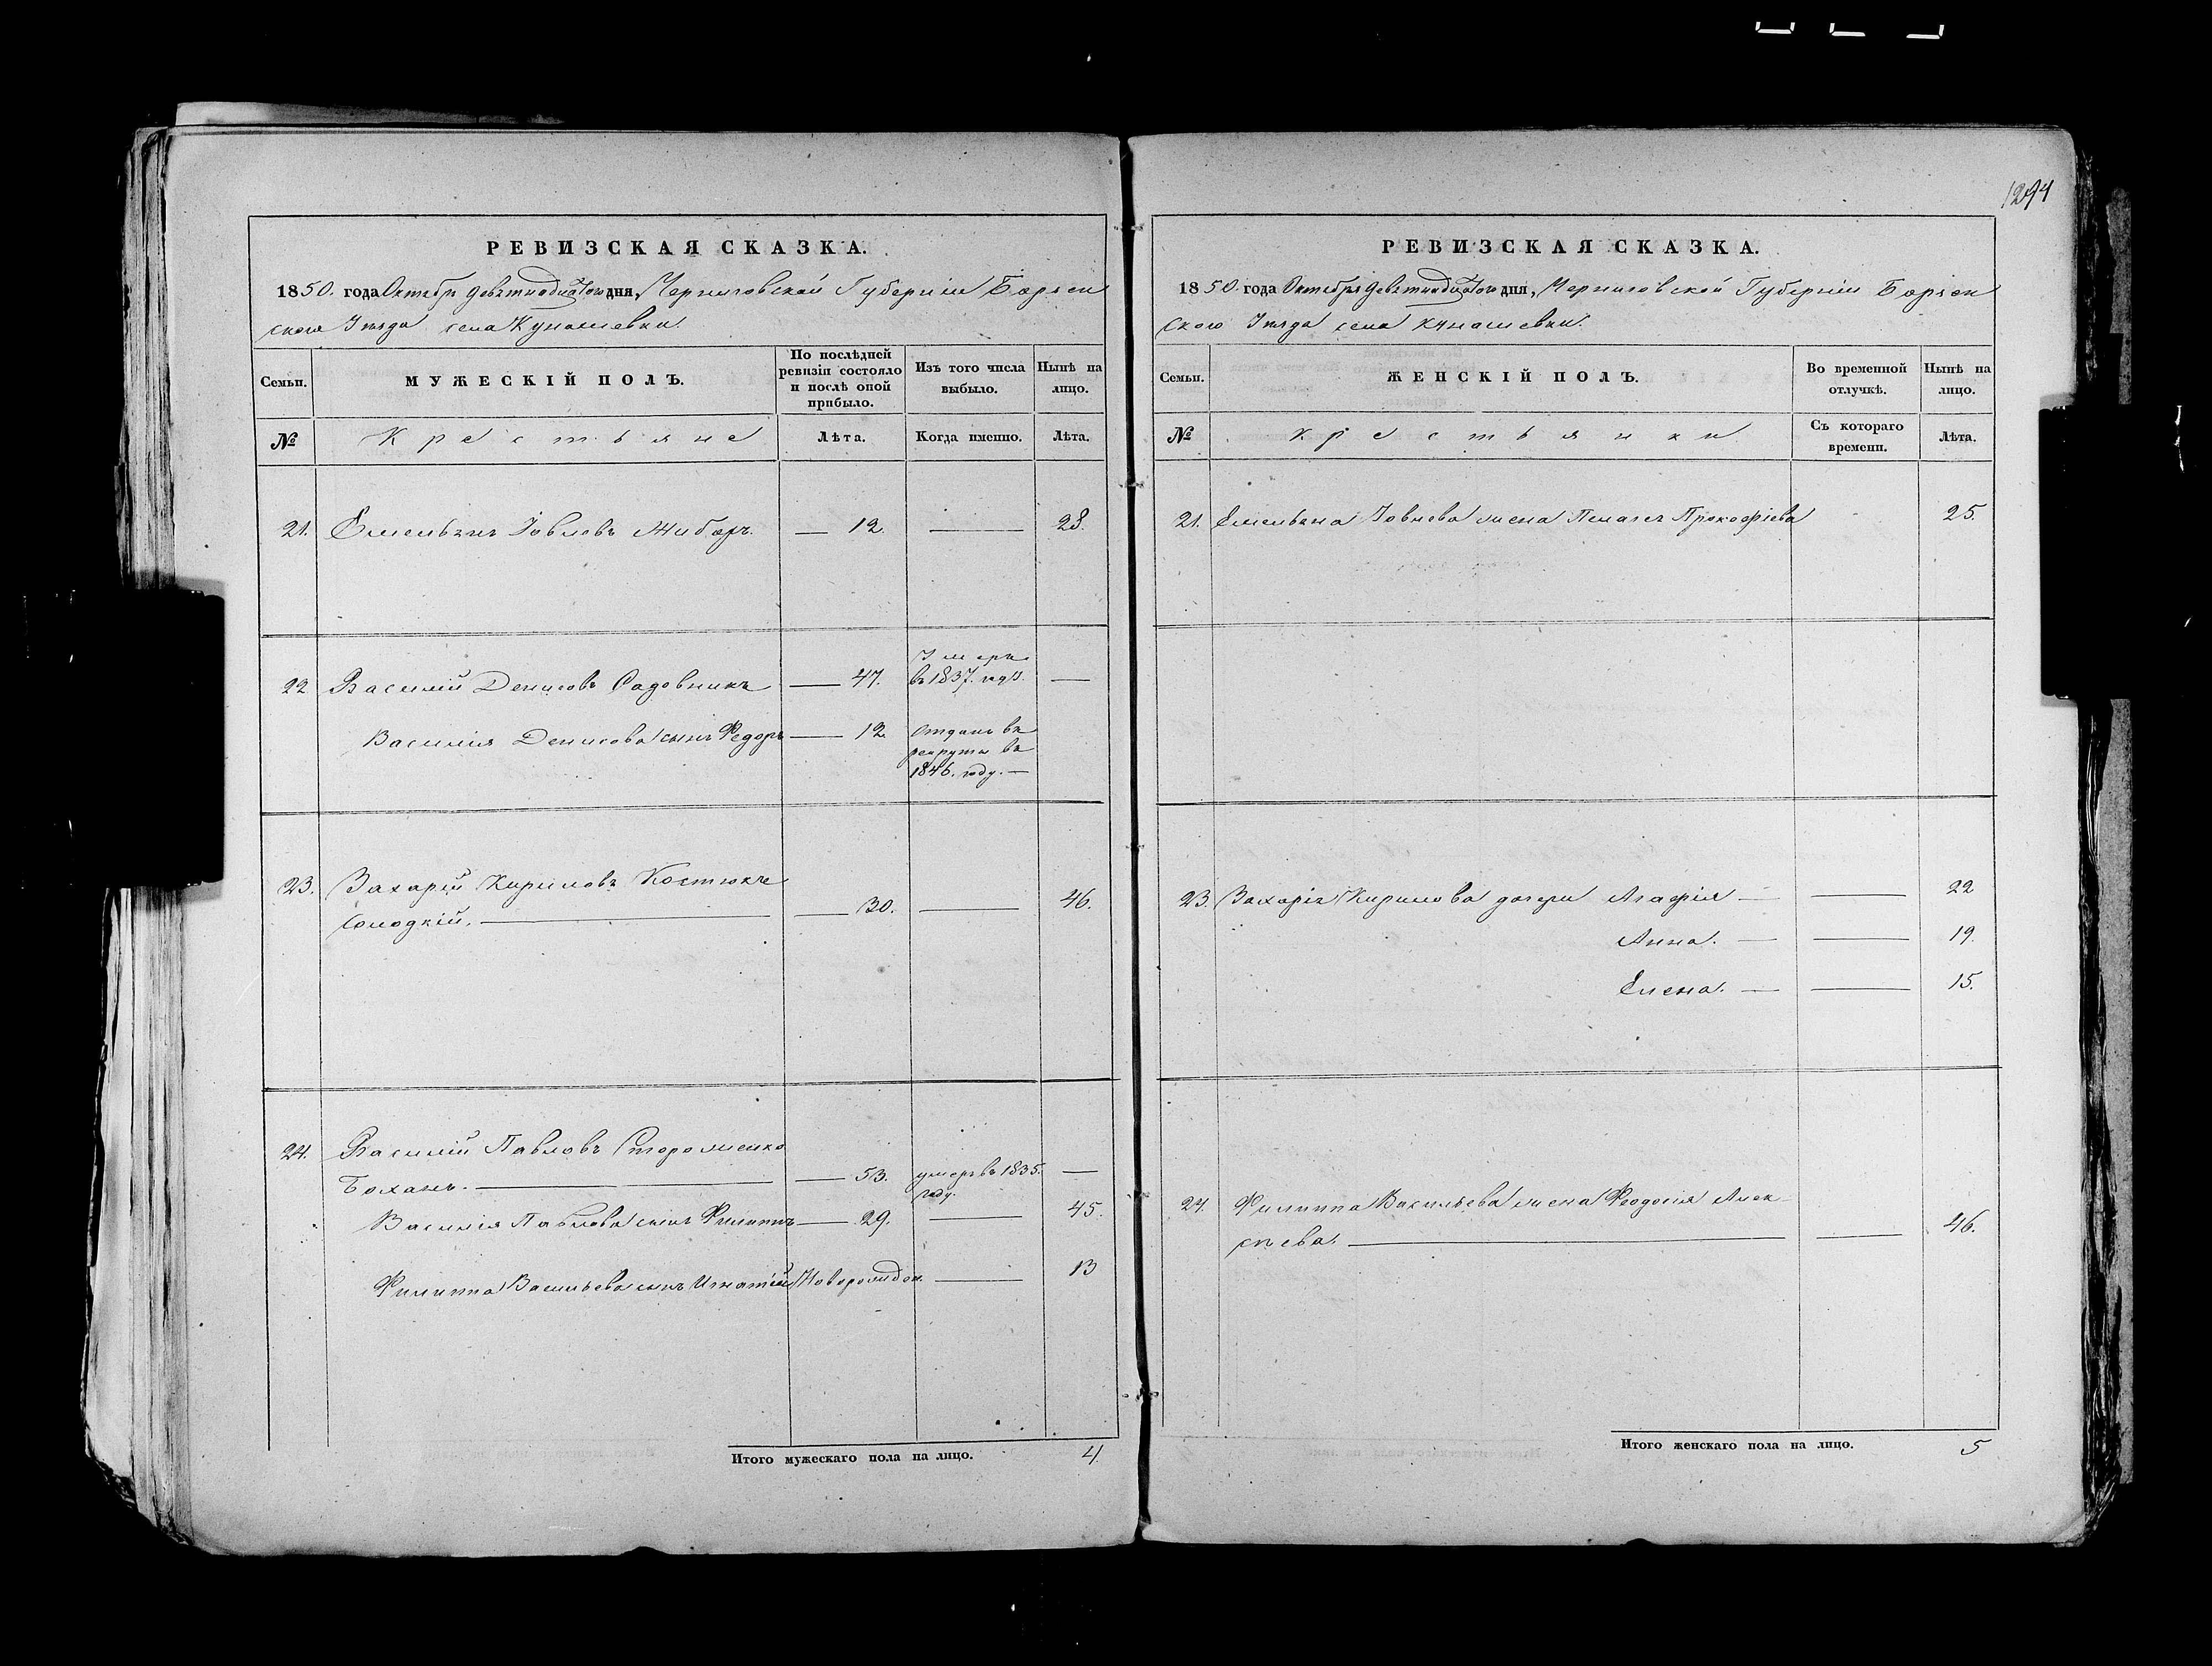 1294
РЕВИЗСКАЯ СКАЗКА.
1850. года Октября девятнадцатого дня, Черниговской Губерніи Борзен
ского Уѣзда села Кунашевки.
Семьи.
МУЖЕСКІЙ ПОЛЪ.
По послѣдней ревизіи состояло и послѣ оной прибыло.
Изъ того числа выбыло.
Нынѣ на лицо.
№
Крестьяне
Лѣта.
Когда именно.
Лѣта.
21. Емельянъ Іовлевъ Жиборъ. — 12. — 28.
22 Василій Денисовъ Садовникъ — 47. Умеръ въ 1837. году. —
Василія Денисова сынъ Федоръ — 12. Отданъ въ рекруты въ 1846. году. —
23. Захарій Кириловъ Костюкъ
Солодкій. — 30. — 46.
24. Василій Павловъ Стороженко
Боханъ. — 53. умеръ въ 1835. году. —
Василія Павлова сынъ Филиппъ — 29. — 45.
Филиппа Васильева сынъ Игнатій Новорожден. — 13
Итого мужескаго пола на лицо. 4.
РЕВИЗСКАЯ СКАЗКА.
1850. года Октября девятнадцатого дня, Черниговской Губерніи Борзен
ского Уѣзда села Кунашевки.
Семьи.
ЖЕНСКІЙ ПОЛЪ.
Во временной отлучкѣ.
Нынѣ на лицо.
№
Крестьянки
Съ котораго времени.
Лѣта.
21. Емельяна Іовлева жена Пелагея Прокофіева 25.
23. Захарія Кирилова дочери Агафія — — 22
Анна. — — 19.
Елена. — — 15.
24. Филиппа Васильева жена Феодосія Алек
сѣева. — — 46.
Итого женскаго пола на лицо. 5